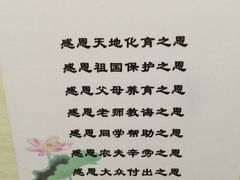 感恩天地化育之恩
感恩祖国保护之恩
感恩父母养育之恩
感恩老师教诲之恩
感恩同学帮助之恩
感恩农夫辛劳之恩
感恩大众付出之恩